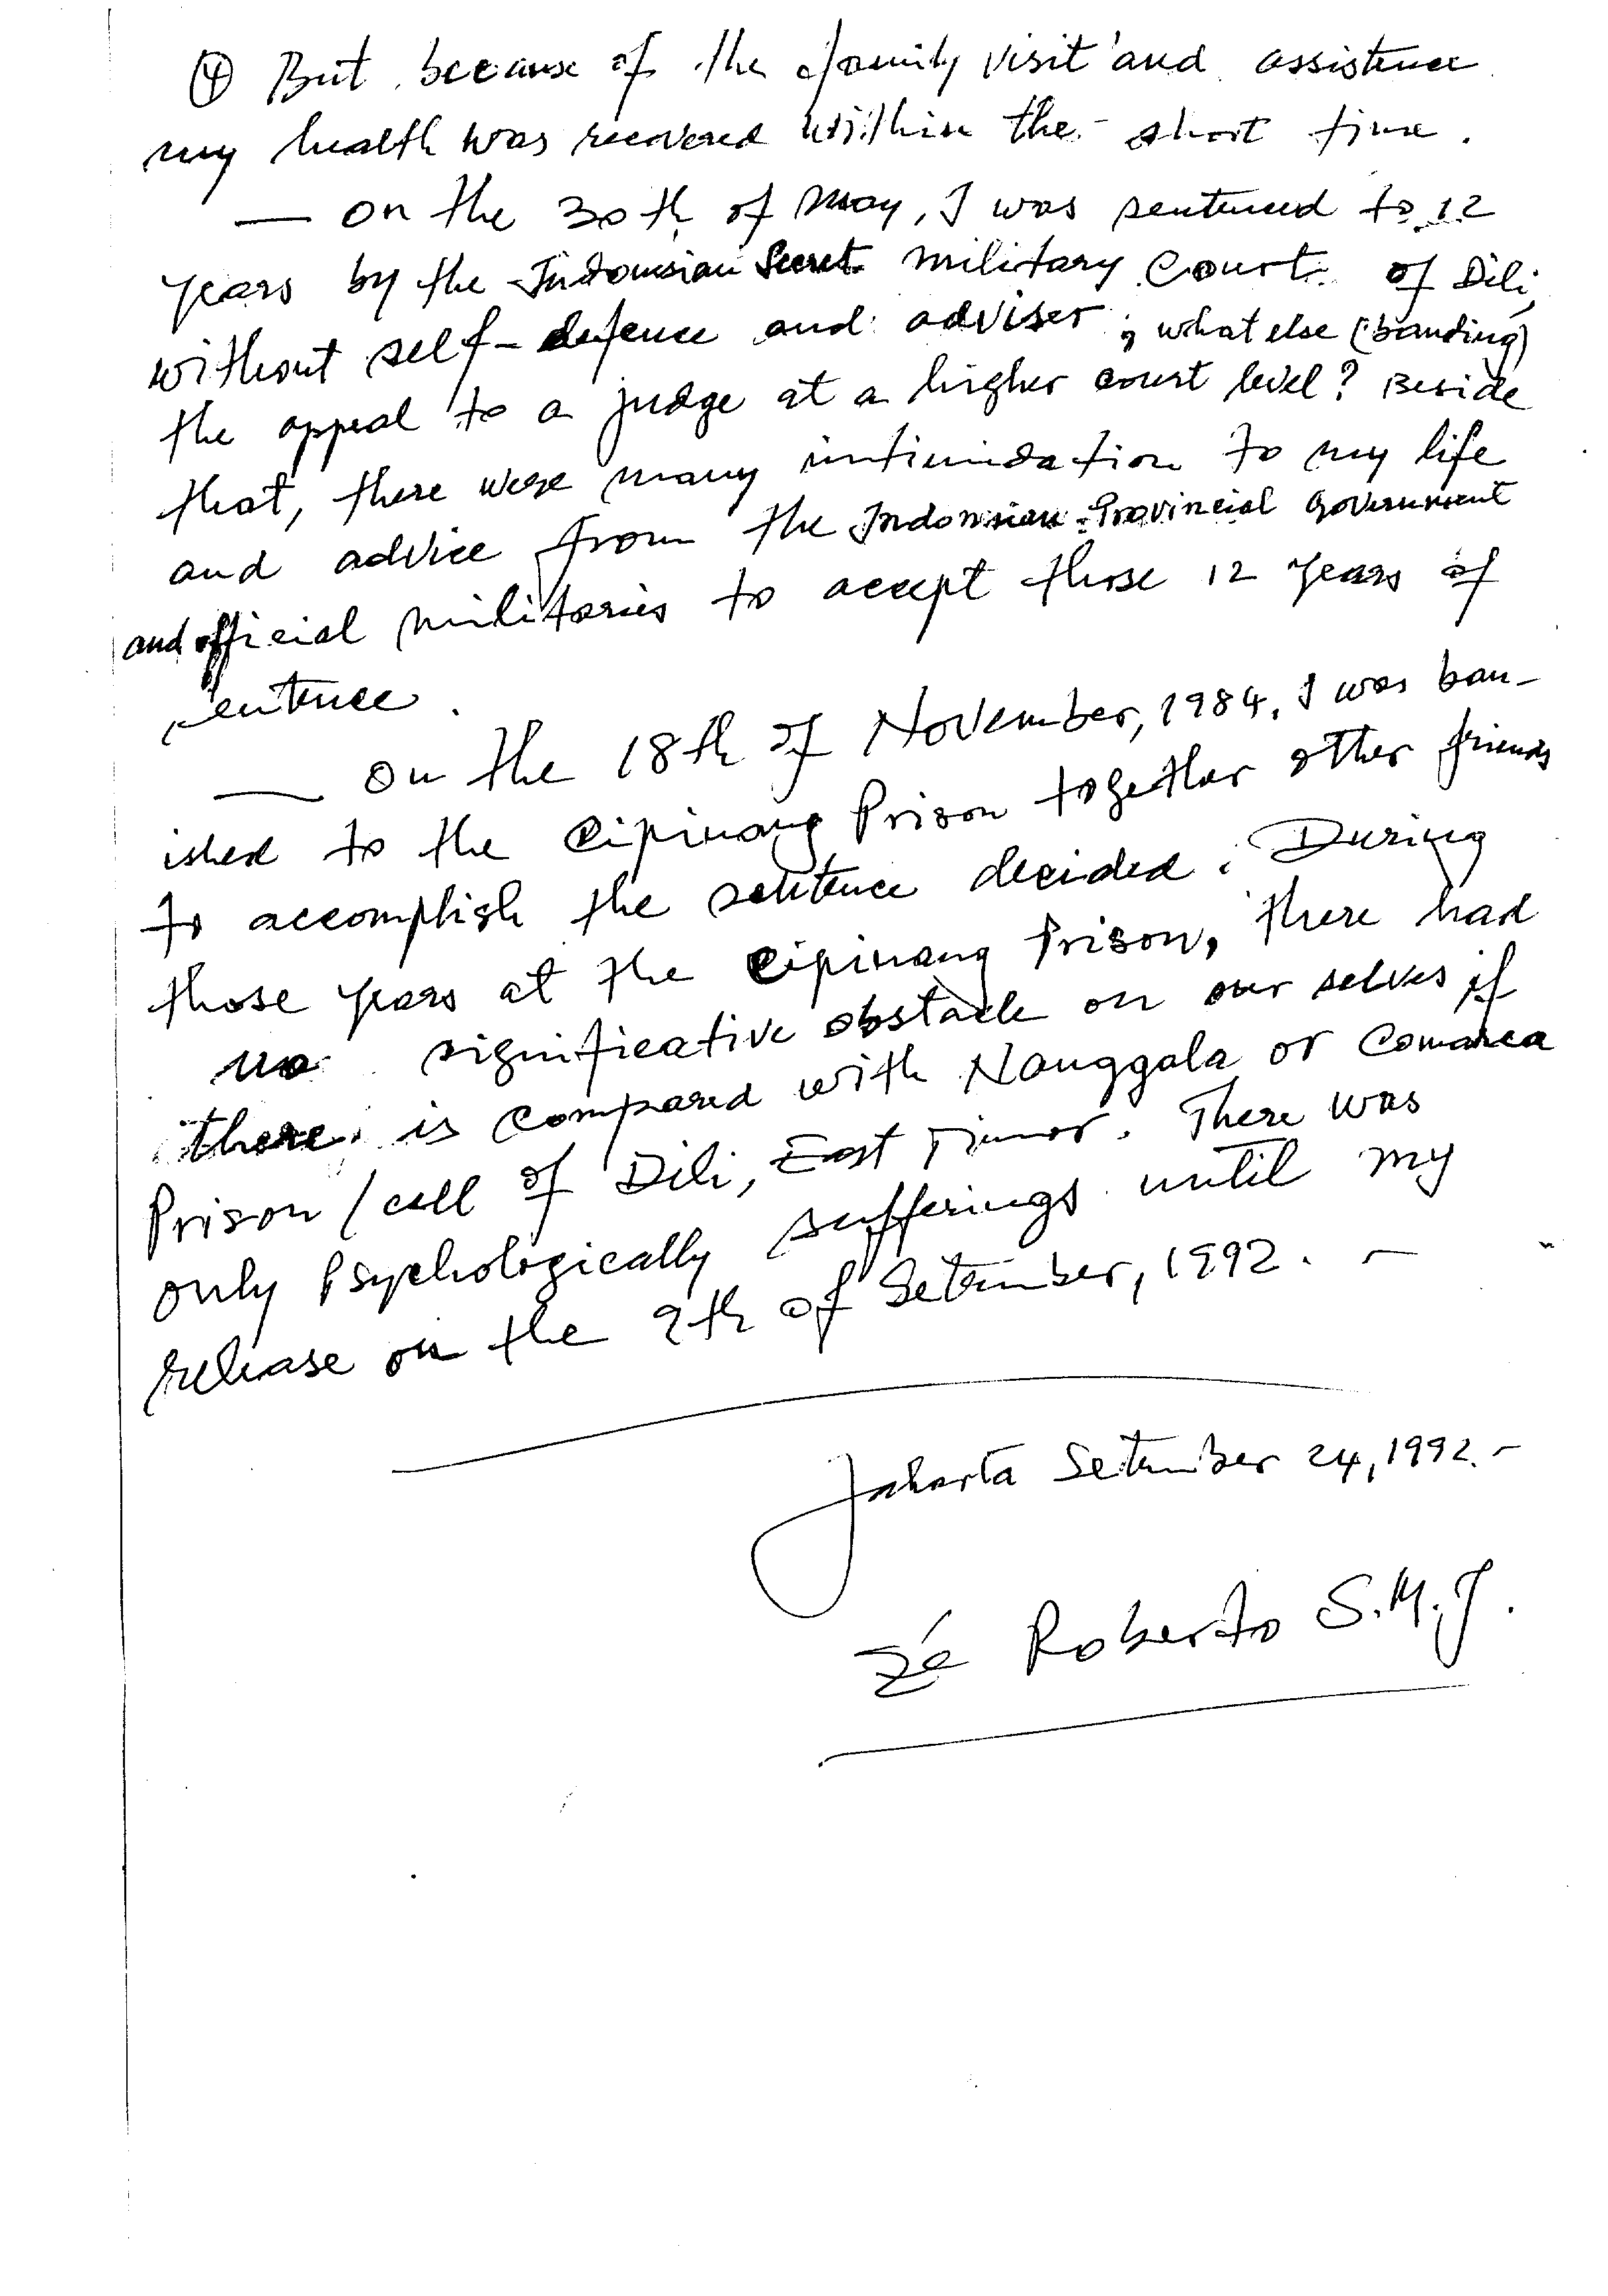 ④ But because of the family visit and assistence
my health was recovered within the short time.
— on the 30th of May, I was sentenced to 12
years by the Indonesian Secret military Court of Dili,
without self-defence and adviser; what else (banding)
the appeal to a judge at a higher court level? Beside
that, there were many intimidation to my life
and advice from the Indonesian Provincial Government
and official militaries to accept those 12 years of
sentence.
— on the 18th of November, 1984, I was ban-
ished to the Cipinang Prison together other friends
to accomplish the sentence decided. During
those years at the Cipinang Prison, there had
no significative obstacle on our selves if
there is compared with Nanggala or Comarca
Prison / cell of Dili, East Timor. There was
only psychologically sufferings until my
release on the 9th of Setember, 1992. —
Jakarta Setember 24, 1992.-
Zé Roberto S.M.J.